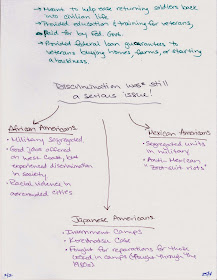 → Meant to help ease returning soldiers back
into civilian life.
→ Provided education & training for veterans,
paid for by Fed. Govt.
→ Provided federal loan guarantees to
veterans buying homes, farms, or starting
a business.
Discrimination was still
a serious issue!
African Americans
• Military segregated
• Good jobs offered
on West Coast, but
experienced discrimination
in society
• Racial violence in
overcrowded cities
Mexican Americans
• Segregated units
in military
• Anti-Mexican
"zoot-suit riots"
Japanese Americans
• Internment Camps
• Korematsu Case
• Fought for reparations for those
locked in camps (fought through the
1980s)